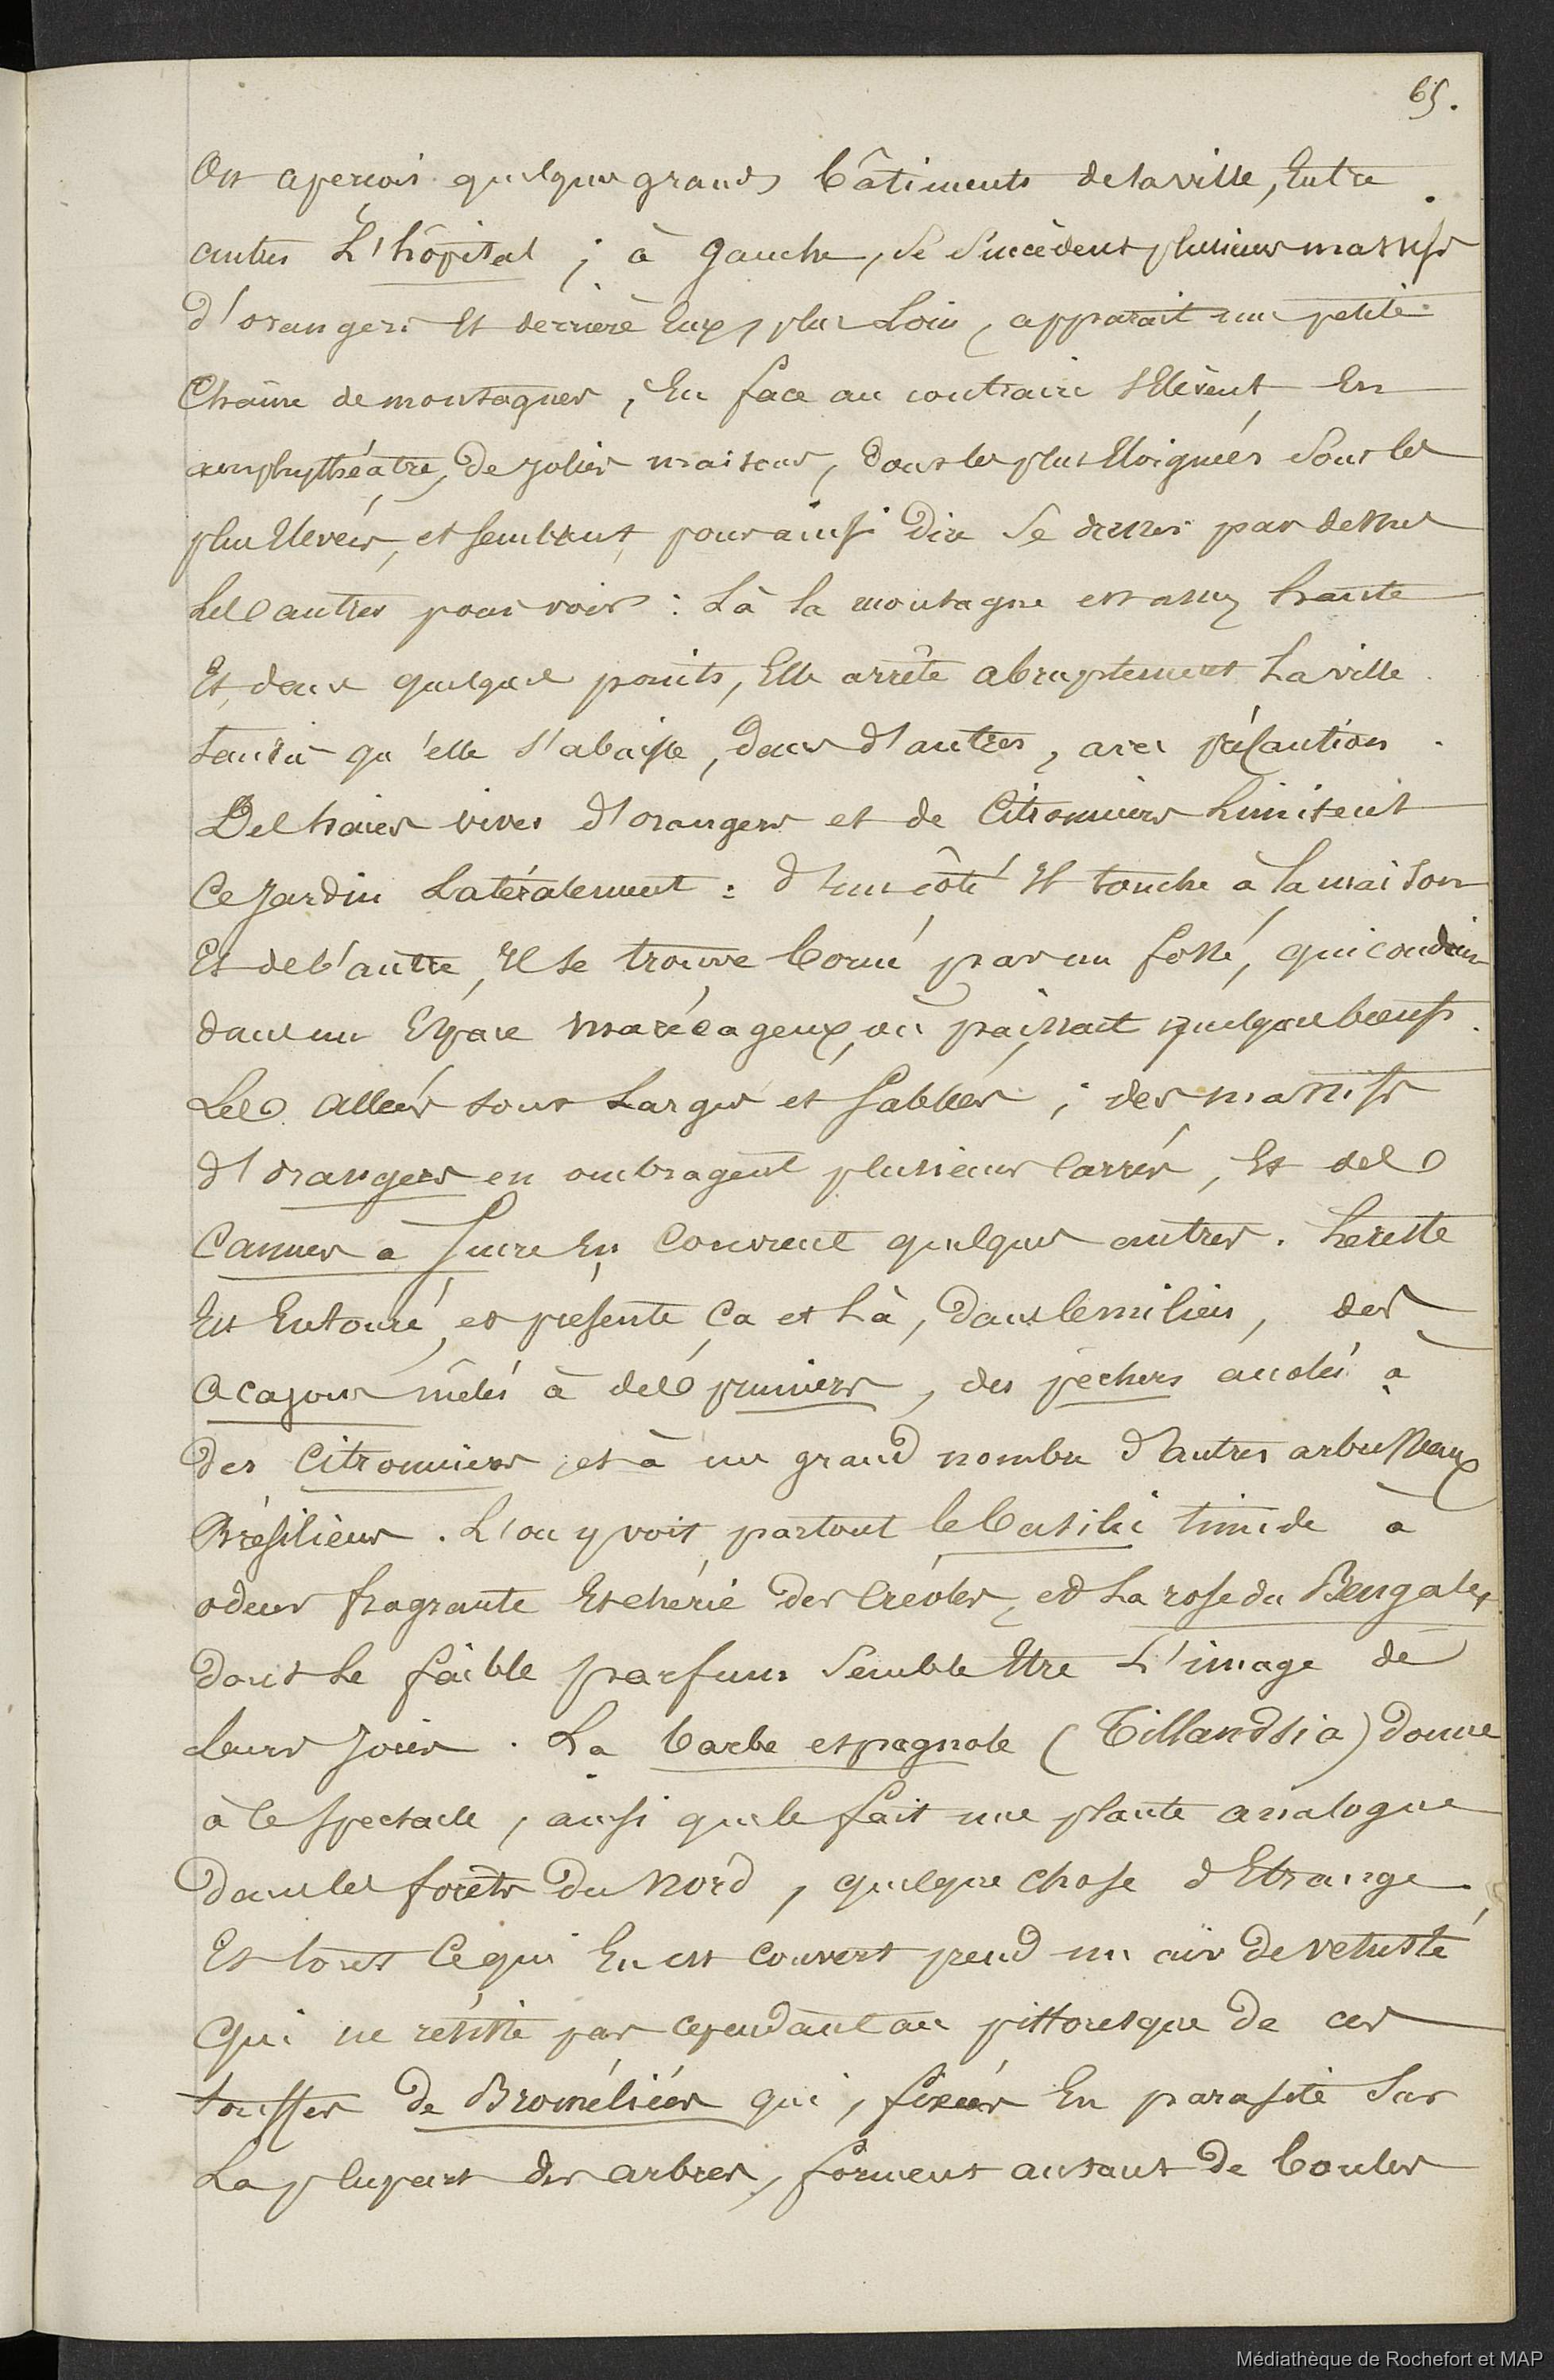 65.
On aperçois quelques grands bâtiments de la ville, Entre
autres L'hôpital ; à gauche, se succèdent plusieurs massifs
d'orangers Et derrière Eux, plus Loin, apparait une petite
Chaîne de montagnes, En face au contraire s'Elèvent En
amphythéatre, de jolies maisons, dont les plus Eloignées sont les
plus Elevées, et semblent, pour ainsi Dire se dresser par dessus
Les autres pour voir : Là la montagne est assez haute
Et, dans quelques points, Elle arrête abruptement La ville
tandis qu'elle s'abaisse, Dans d'autres, avec précaution.
Des haies vives d'orangers et de Citronniers Limitent
Ce Jardin Latéralement : d'un côté Il touche à la maison
Et de l'autre, Il se trouve borné par un fossé, qui conduit
dans un Espace marécageux, où paissait quelques bœufs.
Les allées sont Larges et sablées ; des massifs
d'orangers en ombragent plusieurs Carrés, Et des
Cannes a sucre En Couvrent quelques autres. Le reste
Est Entouré, et présente Ça et Là, Dans le milieu, des
acajous mêlés à des pruniers, des pechers accolés à
des Citronniers, et à un grand nombre d'autres arbrisseaux
Brésiliens. L'on y voit partout le basilic timide à
odeur fragrante Et chérie des Créoles, et La rose du Bengale,
dont Le faible parfum semble Etre L'image de
Leurs Joies. La barbe espagnole (Tillandsia) donne
à ce spectacle, ainsi que le fait une plante analogue
Dans les forêts Du Nord, quelque chose d'Etrange
Et tout Ce qui En est Couvert prend un air de vetusté,
Qui ne résiste pas cependant au pittoresque de ces
touffes de Broméliées qui, fixées En parasite sur
La plupart des arbres, forment autant de boules
Médiathèque de Rochefort et MAP